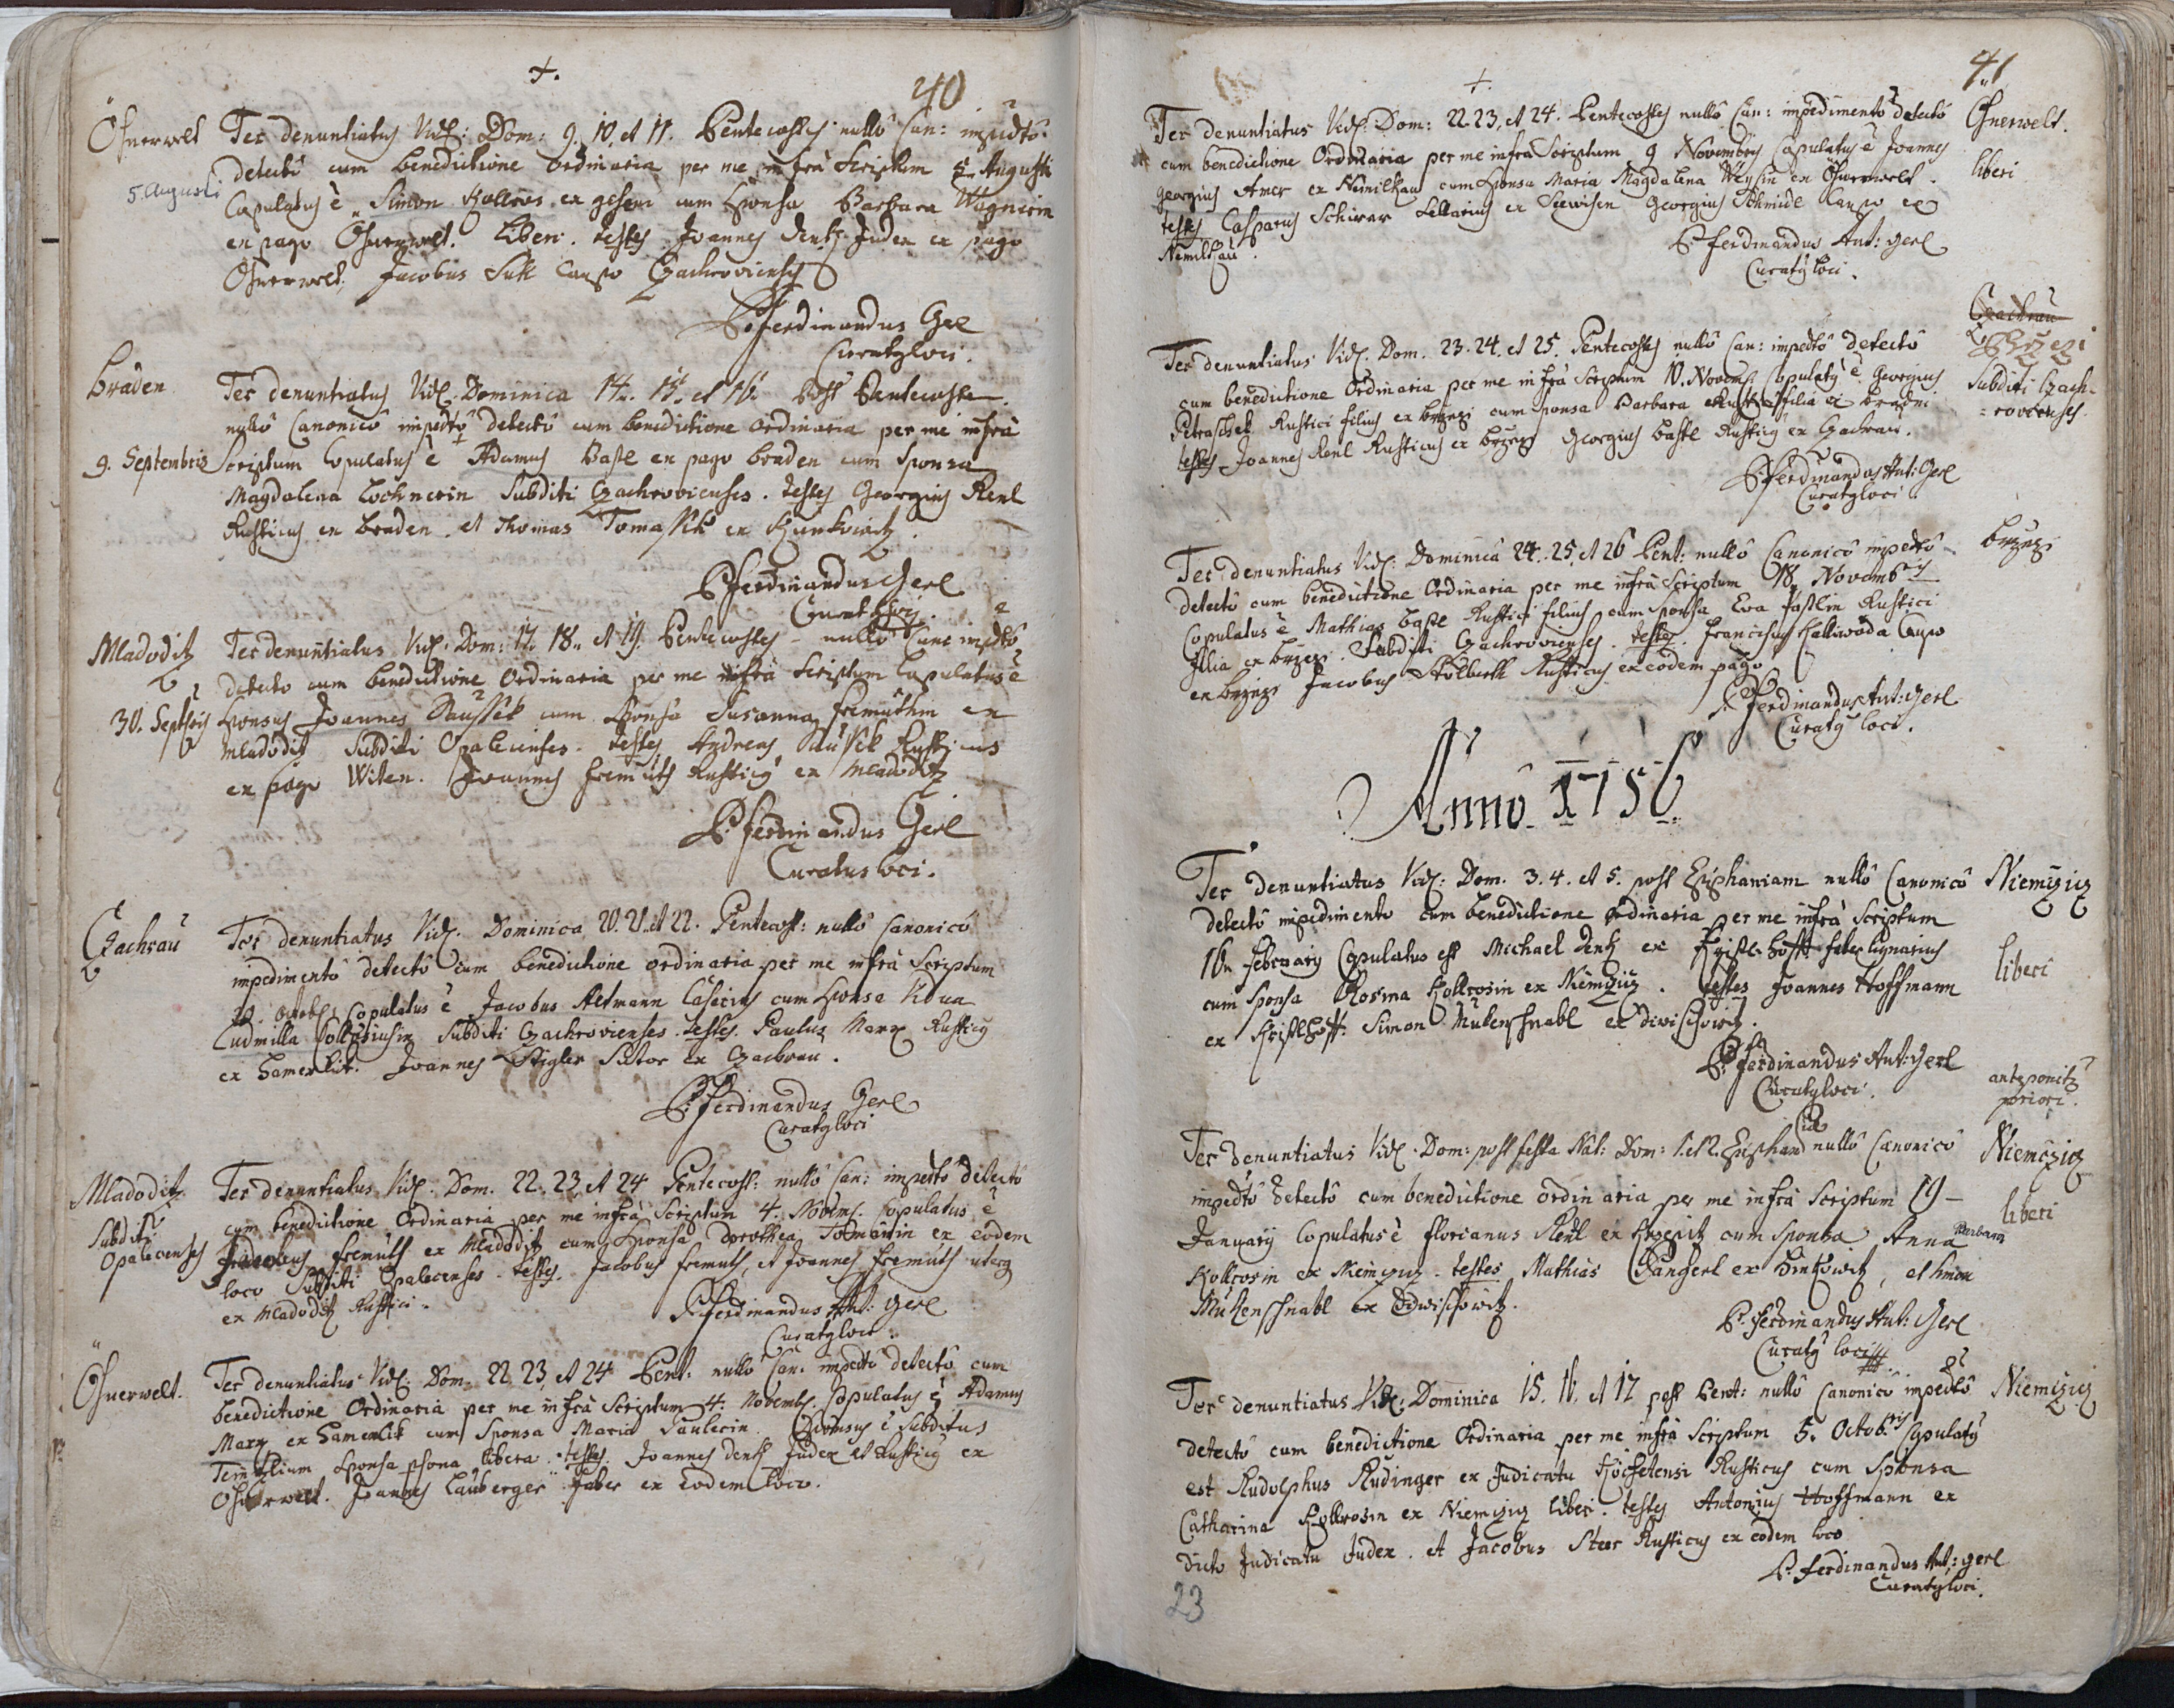 +.
40
Öhnerwelt
Ter denuntiatus Videl: Dom: 9. 10. et 11. Pentecostes nullô Can: impedtô
5 Augusti
detectô cum benedictione ordinaria per me infrà Scriptum 5 Augusti
Copulatus ê Simon Kollros ex cum Sponsa Barbara Wagnerin
ex pago Öhnerwelt. Liberi. testes Joannes Denk Judex ex pago
Öhnerwelt, Jacobus Sutt Caupo Czachroviensis
P. Ferdinandus Gerl
Curatus loci.
Braden
Ter denuntiatus Videl. Dominica 14. 15. et 16. Post Pentecosten.
nullô Canonicô impedtô detectô cum benedictione ordinaria per me infrà
9. Septembris
Scriptum Copulatus ê Adamus Bastl ex pago braden cum Sponsa
Magdalena Lochnerin Subditi Czachrovienses. testes Georgius Renl
Rusticus ex braden. et Thomas Tomassek ex Kunkowitz.
P. Ferdinandus Gerl
Curatus loci.
Mladoditz
Ter denuntiatus Videl. Dom: 17. 18. et 19. Pentecostes nullô Cano impdtô
detecto cum benedictione Ordinaria per me infrà Scriptum Copulatus ê
30. Septbris
Sponsus Joannes Saussek cum Sponsa Susanna Fremuthin ex
Mladoditz Subditi Opalecienses. testes Andreas Saussek Rusticus
ex pago Witen. Joannes Fremuth Rusticus ex Mladoditz
P. Ferdinandus Gerl
Curatus loci.
Czachrau
Ter denuntiatus Videl. Dominica 20. 21. et 22. Pentecost: nullô Canonicô
impedimentô detectô cum benedictione ordinaria per me infrà Scriptum
29. Octobris Copulatus ê Jacobus Altmann Casearius cum Sponsa Vidua
Ludmilla Subditi Czachrovienses. testes. Paulus Marx Rusticus
ex Hamerlik. Joannes Stigler Sutor ex Czachrau.
P. Ferdinandus Gerl
Curatus loci
Mladoditz
Ter denuntiatus Videl. Dom. 22. 23 et 24 Pentecost: nullô Can: impedtô detectô
Subditi
cum benedictione Ordinaria per me infrà Scriptum 4. Novembris Copulatus ê
Opalecienses
Fremuth ex Mladoditz cum Sponsa Dorothea Tomanin ex eodem
loco Subditi Opalecenses. testes. Jacobus Fremuth, et Joannes Fremuth uterque
ex Mladoditz Rustici.
P. Ferdinandus Ant: Gerl
Curatus loci.
Öhnerwelt.
Ter denuntiatus Videl: Dom. 22 23, et 24 Pent. nullô Can. impedtô detectô cum
benedictione Ordinaria per me infrà Scriptum 4. Novembris Copulatus ê Adamus
Marx ex Hamerlik cum Sponsa Maria Paulerin. Sponsus ê Subditus
Sponsa psona libera. testes. Joannes Denk Judex et Rusticus ex
Öhnerwelt. Joannes Lauberger Faber ex eodem loco.
+.
41
Ter denuntiatus Videl: Dom: 22. 23, et 24. Pentecostes nullô Can: impedimentô detectô
Öhnerwelt.
cum benedictione Ordinaria per me infra Scriptum 9 Novembris Copulatus ê Joannes
liberi
Georgius Amer ex Nemilkau cum Sponsa Maria Magdalena Weysin ex Öhnerwelt.
testes Casparus Schirer Sellarius ex Seewisen Georgius Schmidl Caupo ex
Nemilkau.
P. Ferdinandus Ant: Gerl
Curatus loci.
Czachrau
Brzezi
Ter denuntiatus Videl. Dom. 23. 24. et 25. Pentecostes nullô Can: impedtô detectô
Subditi Czach-
cum benedictione Ordinaria per me infrà Scriptum 10. Novemb. Copulatus ê Georgius
=rovienses.
Petraschek Rustici filius ex brzezi cum sponsa Barbara Rustici filia ex braden
testes Joannes Renl Rusticus ex brzezi Georgius Bastl Rusticus ex Czachrau.
P. Ferdinandus Ant: Gerl
Curatus loci
Ter denuntiatus Videl: Dominica 24. 25, et 26 Pent: nullô Canonicô impedtô
brzezi
detectô cum benedictione Ordinaria per me infrà Scriptum 18. Novembris
Copulatus ê Mathias bastl Rustici filius cum Sponsa Eva Pastlin Rustici
filia ex brzezi. Subditi Czachrovienses. testes. Franciscus Halliwoda Caupo
ex brzezi Jacobus Rusticus ex eodem pago
P. Ferdinandus Ant: Gerl
Curatus loci.
Annô 1756
Ter denuntiatus Videl: Dom. 3. 4. et 5. post Epiphaniam nullô Canonicô
Niemczicz
detectô impedimento cum benedictione ordinaria per me infrà Scriptum
16. February Copulatus est Michael Denk ex faber lignarius
liberi
cum Sponsa Rosina Kollrosin ex Niemczicz. testes Joannes Hoffmann
ex Simon Mukenschnabl ex Diwischowitz.
P. Ferdinandus Ant: Gerl
Curatus loci.
anteponitur
priori.
Ter denuntiatus Videl. Dom: post festa Nat: Dom: 1. et 2. Epiphan nullô Canonicô
Niemczicz
impedtô detectô cum benedictione ordinaria per me infrà Scriptum 19
liberi
January Copulatus ê Florianus Renl ex cum Sponsa Anna Barbara
Kollrosin ex Niemczicz. testes Mathias Gangerl ex Hinkowitz, et Simon
Mukenschnabl ex Diwischowitz.
P. Ferdinandus Ant: Gerl
Curatus loci
Ter denuntiatus Videl: Dominica 15. 16. et 17 post Pent: nullô Canonicô impedtô
Niemczicz
detectô cum benedictione Ordinaria per me infrà Scriptum 5. Octobris Copulatus
est Rudolphus Rudinger ex Judicatu Rusticus cum Sponsa
Catharina Kollrosin ex Niemczicz liberi. testes Antonius Hoffmann ex
dicto Judicatu Judex. et Jacobus Steer Rusticus ex eodem loco
P. Ferdinandus Ant: Gerl
Curatus loci.
23